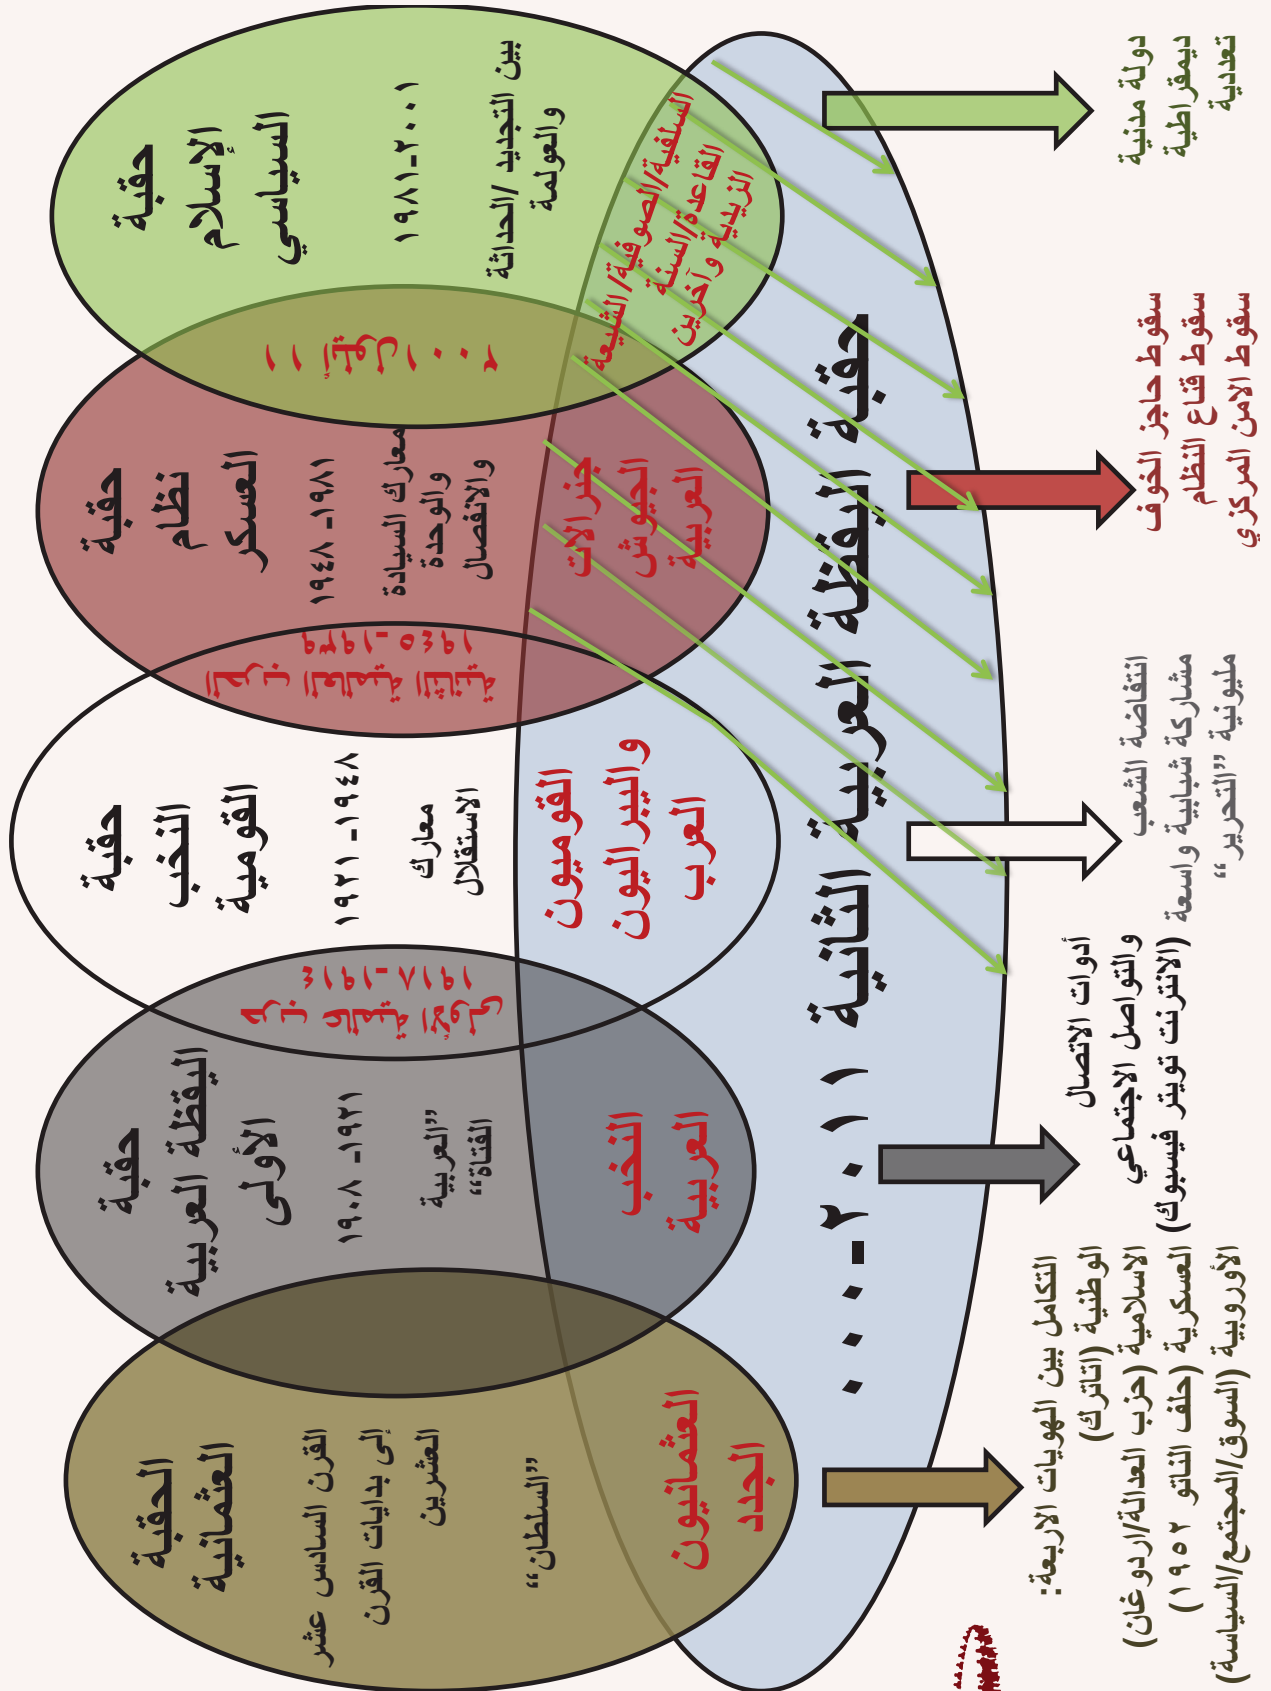 حقبة
الإسلام
السياسي
١٩٨١-٢٠٠١
بين التجديد /الحداثة
والعولمة
السلفية/الصوفية/ الشيعة
القاعدة/السنة
الزيدية وآخرين
١١ أيلول ٢٠٠١
حقبة
نظام
العسكر
١٩٤٨ -١٩٨١
معارك السيادة
والوحدة
والانفصال
جنرالات
الجيوش
العربية
الحرب العالمية الثانية
١٩٣٩-١٩٤٥
حقبة
النخب
القومية
١٩٢١ -١٩٤٨
معارك
الاستقلال
القوميون
والليبراليون
العرب
حرب عالمية الأولى
١٩١٤-١٩١٨
حقبة
اليقظة العربية
الأولى
١٩٠٨ -١٩٢١
”العربية
الفتاة“
النخب
العربية
الحقبة
العثمانية
القرن السادس عشر
إلى بدايات القرن
العشرين
”السلطان“
العثمانيون
الجدد
حقبة اليقظة العربية الثانية ٢٠١١-....
دولة مدنية
ديمقراطية
تعددية
سقوط حاجز الخوف
سقوط قناع النظام
سقوط الامن المركزي
انتفاضة الشعب
مشاركة شبابية واسعة
مليونية ”التحرير“
أدوات الاتصال
والتواصل الاجتماعي
(الانترنت تويتر فيسبوك)
التكامل بين الهويات الاربعة:
الوطنية (اتاترك)
الاسلامية (حزب العدالة/اردوغان)
العسكرية (حلف الناتو ١٩٥٢)
الأوروبية (السوق/المجتمع/السياسة)